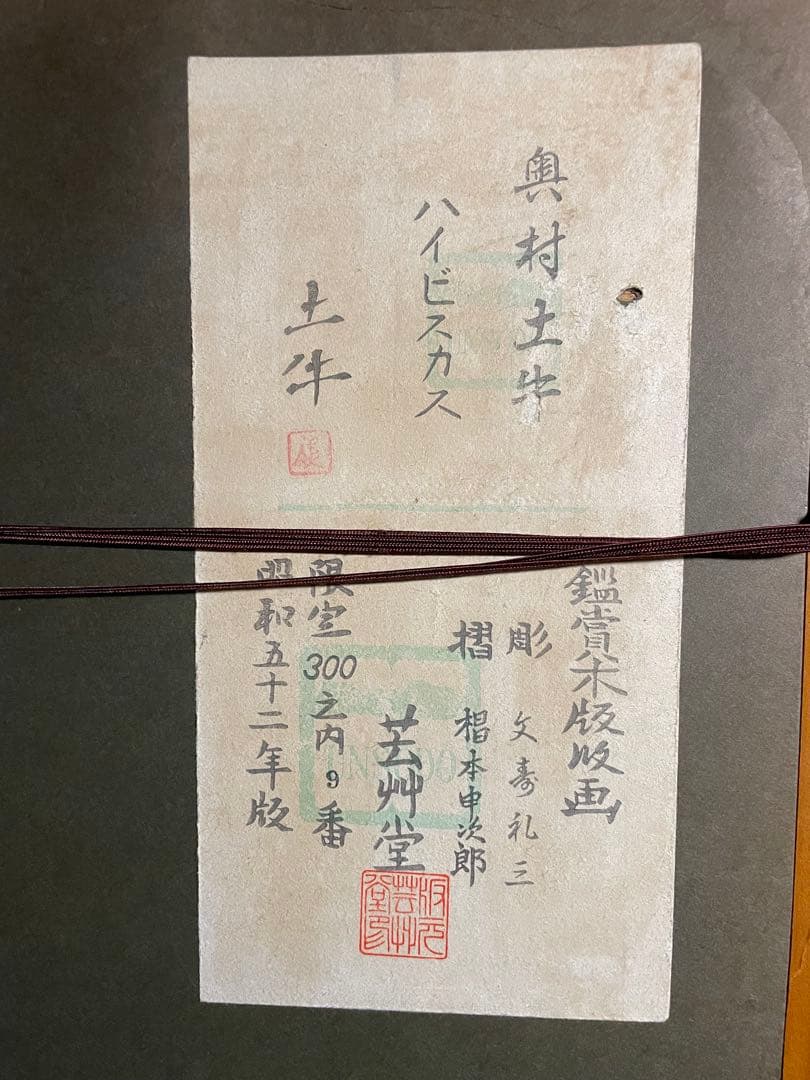 奥村土牛
ハイビスカス
土牛
鑑賞木版版画
彫 文寿礼三
摺 椙本申次郎
芸艸堂
版元芸艸堂印
限定300之内9番
昭和五十二年版